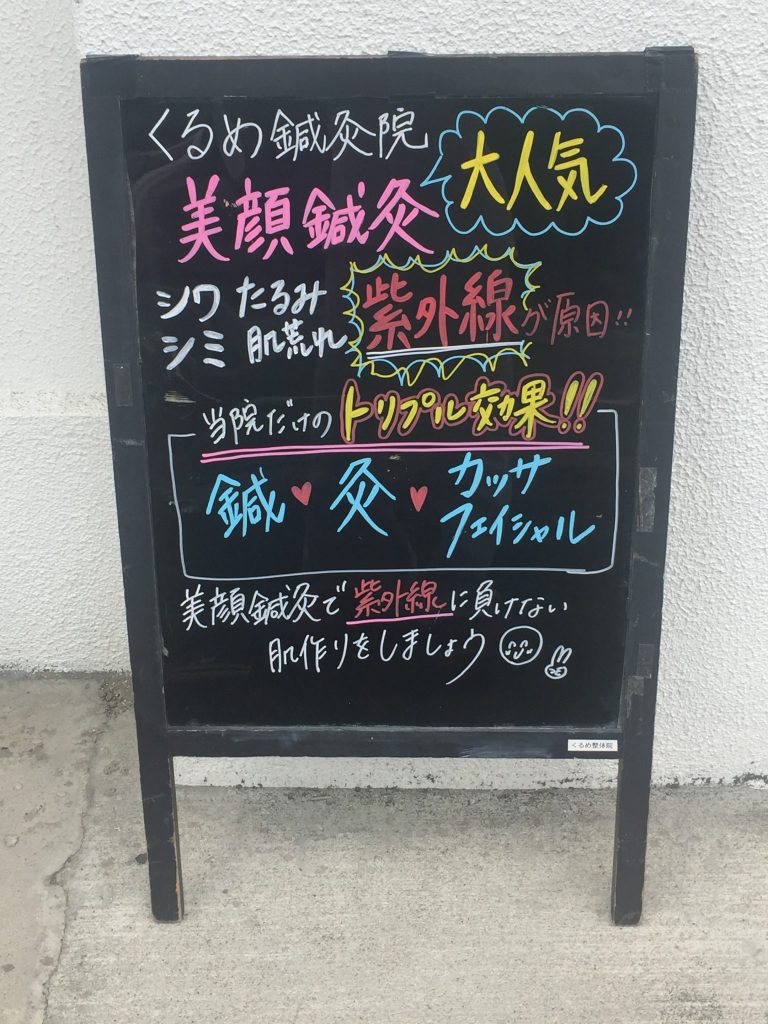 くるめ鍼灸院
大人気
美顔鍼灸
シワ たるみ
シミ 肌荒れ
紫外線が原因!!
当院だけのトリプル効果!!
鍼♥灸♥カッサ
フェイシャル
美顔鍼灸で紫外線に負けない
肌作りをしましょう
くるめ整体院